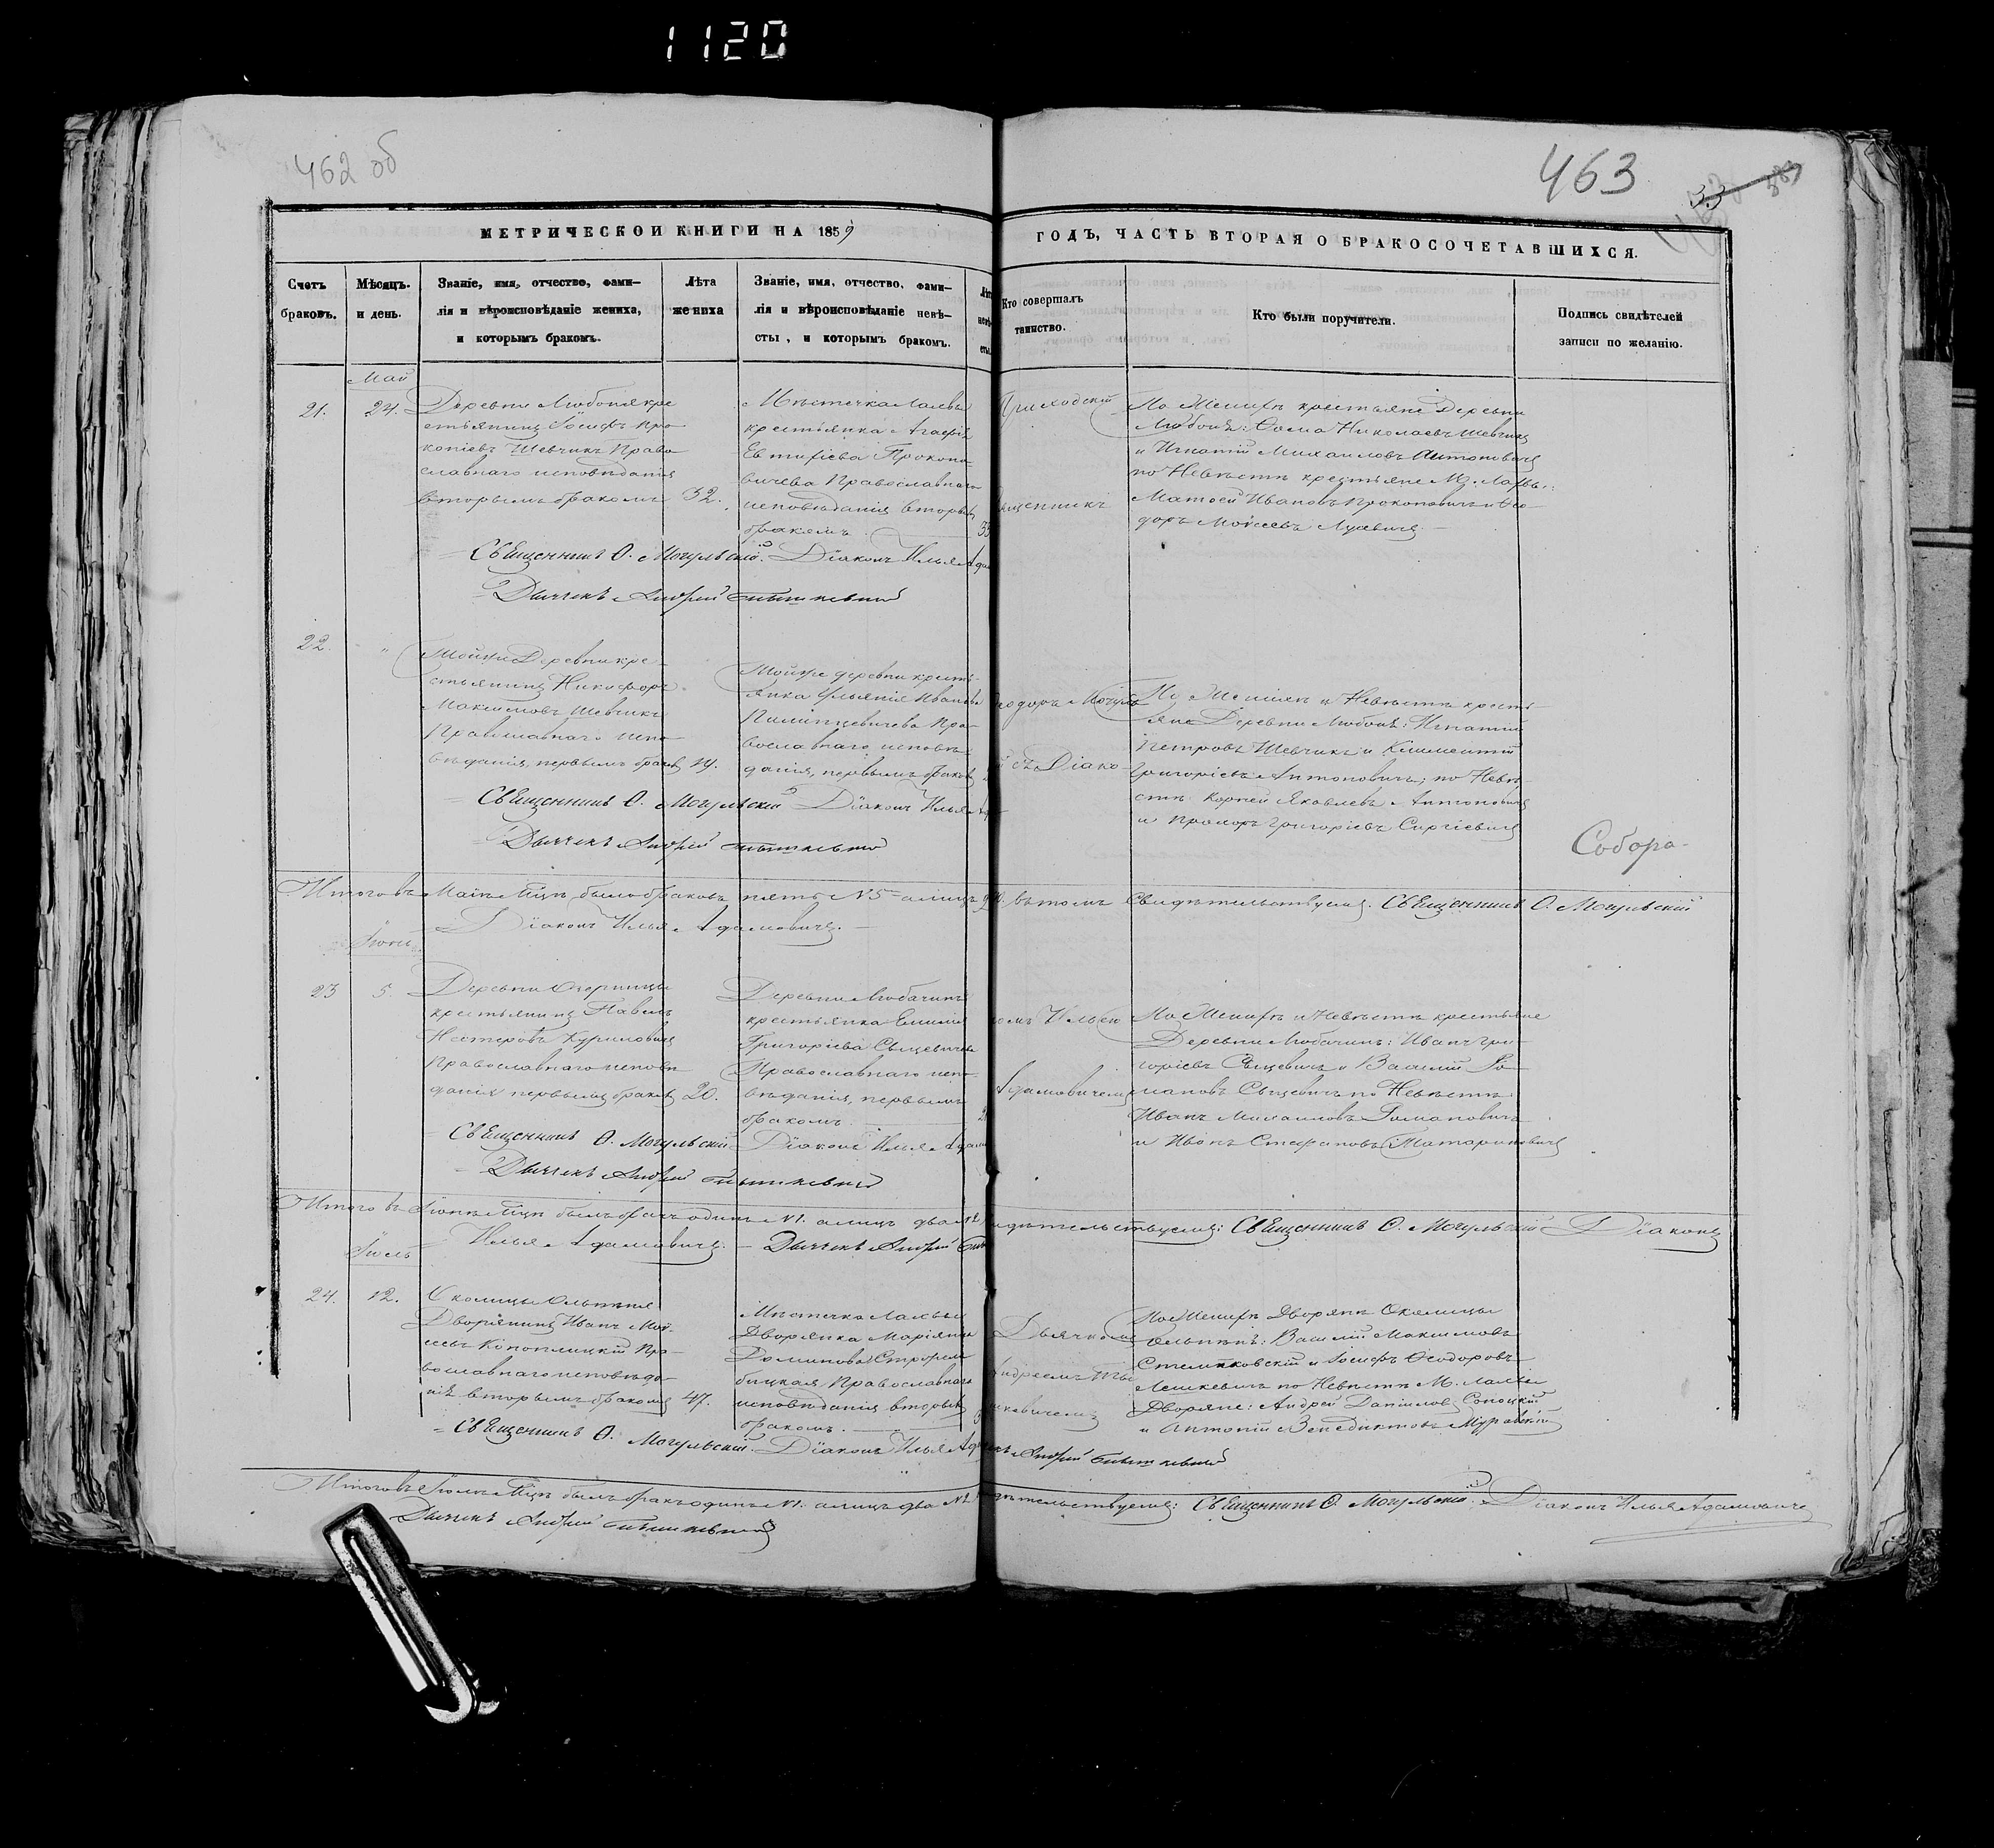 1120
462 об
463
33
МЕТРИЧЕСКОЙ КНИГИ НА 1859
ГОДЪ, ЧАСТЬ ВТОРАЯ О БРАКОСОЧЕТАВШИХСЯ.
Счетъ
браковъ.
Мѣсяцъ.
и день.
Званіе, имя, отчество, фами–
лія и вѣроисповѣданіе жениха,
и которымъ бракомъ.
Лѣта
жениха
Званіе, имя, отчество, фами–
лія и вѣроисповѣданіе невѣ–
сты, и которымъ бракомъ.
Кто совершалъ
таинство.
Кто были поручители.
Подпись свидѣтелей
записи по желанію.
Май
21.
24.
Деревни Любоня кре
стьянинъ Іосифъ Про
копіевъ Шевчикъ Право
славнаго исповѣданія
вторымъ бракомъ
32.
Мѣстечка Лахвы
крестьянка Агафія
Евтихіева Прокопо
вичева Православнаго
исповѣданія вторымъ
бракомъ.
Приходскій
По Женихѣ крестьяне Деревни
Любонь: Ѳома Николаевъ Шевчикъ
и Игнатій Михаиловъ Антоновичъ
по Невѣстѣ крестьяне М. Лахвы:
Матѳей Ивановъ Прокоповичъ и Ѳео–
доръ Моисеевъ
Священникъ Ѳ. Могульскій. Діаконъ Илья
Дьячекъ Андрей
22.
"
Тойже Деревни кре–
стьянинъ Никифоръ
Максимовъ Шевчикъ
Православнаго испо–
вѣданія, первымъ бракомъ
19.
Тойже деревни кресть–
янка Ульянія Иванова
Пилипцевичева Пра–
вославнаго исповѣ
данія, первымъ бракомъ
Ѳеодоръ Могуль
По Женихѣ и Невѣстѣ кресть–
яне Деревни Любонь: Игнатій
Петровъ Шевчикъ и Климентій
Григоріевъ Антоновичъ; по Невѣ–
стѣ Корней Яковлевъ Антоновичъ
и Прохоръ Григоріевъ Сиргіевичъ
съ Діако–
Собора–
Священникъ Ѳ. Могульскій Діаконъ Илья
Дьячекъ Андрей
Итого въ Маѣ М͠цѣ было браковъ пять №5 а лицъ въ томъ Свидѣтельствуемъ. Священникъ Ѳ. Могульскій
Діаконъ Илья Адамовичъ.
Іюнь
23
5.
Деревни
крестьянинъ Павелъ
Нестеровъ Куриловичъ
Православнаго исповѣ
данія первымъ бракомъ
20.
Деревни Любачинъ
крестьянка
Григоріева Сыцевичева
Православнаго испо–
вѣданія, первымъ
бракомъ.
номъ Ильею
Адамовичемъ
По Женихѣ и Невѣстѣ крестьяне
Деревни Любачинъ: Иванъ Гри–
горіевъ Сыцевичъ и Василій Ро–
мановъ Сыцевичъ по Невѣстѣ
Иванъ Михаиловъ Романовичъ
и Иванъ Стефановъ Татариновичъ
Священникъ Ѳ. Могульскій Діаконъ Илья
Дьячекъ Андрей
Итого въ Іюнѣ М͠цѣ былъ бракъ одинъ №1. а лицъ два Свидѣтельствуемъ: Священникъ Ѳ. Могульскій Діаконъ
Илья Адамовичъ. Дьячекъ Андрей
Іюль
24.
12.
Околицы Ольпеня
Дворянинъ Иванъ Мой–
сеевъ Коноплицкій Пра–
вославнаго исповѣда–
нія вторымъ бракомъ
47.
Мѣстечка Лахвы
Дворянка Маріянна
Доминова
Православнаго
исповѣданія вторымъ
бракомъ.
Дьячкомъ
Андреемъ
По Женихѣ Дворяне Околицы
Ольпень: Василій Максимовъ
и Іосифъ Ѳеодоровъ
Лешкевичъ по Невѣстѣ М. Лахвы
Дворяне: Андрей Даниловъ Сопоцкій
и Антоній Венедиктовъ Муравскій
Священникъ Ѳ. Могульскій. Діаконъ Илья Андрей
Итого въ Іюлѣ М͠цѣ былъ бракъ одинъ №1. а лицъ два Свидѣтельствуемъ: Священникъ Ѳ. Могульскій. Діаконъ Илья Адамовичъ
Дьячекъ Андрей